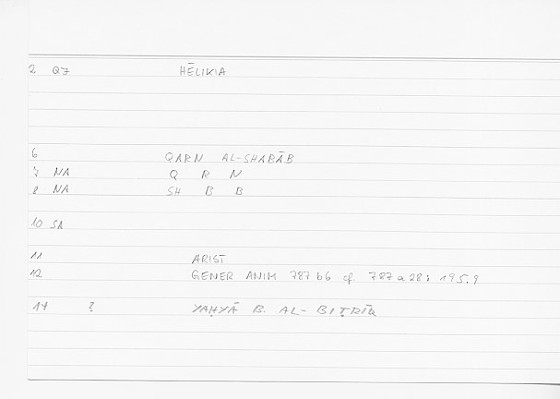 2 Q7 HĒLIKIA
6 QARN AL-SHABĀB
7 NA Q R N
8 NA SH B B
10 SA
11 ARIST
12 GENER ANIM 787 b6 cf 787 a 28; 195.9
14 ? YAḤYĀ B. AL-BIṬRĪQ